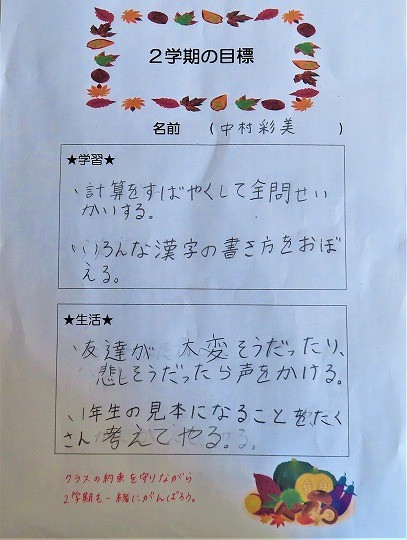 2学期の目標
名前 （中村彩美 ）
★学習★
・計算をすばやくして全問せい
かいする。
・いろんな漢字の書き方をおぼ
える。
★生活★
・友達が大変そうだったり、
悲しそうだったら声をかける。
・1年生の見本になることをたく
さん考えてやる。
クラスの約束を守りながら
2学期も一緒にがんばろう。